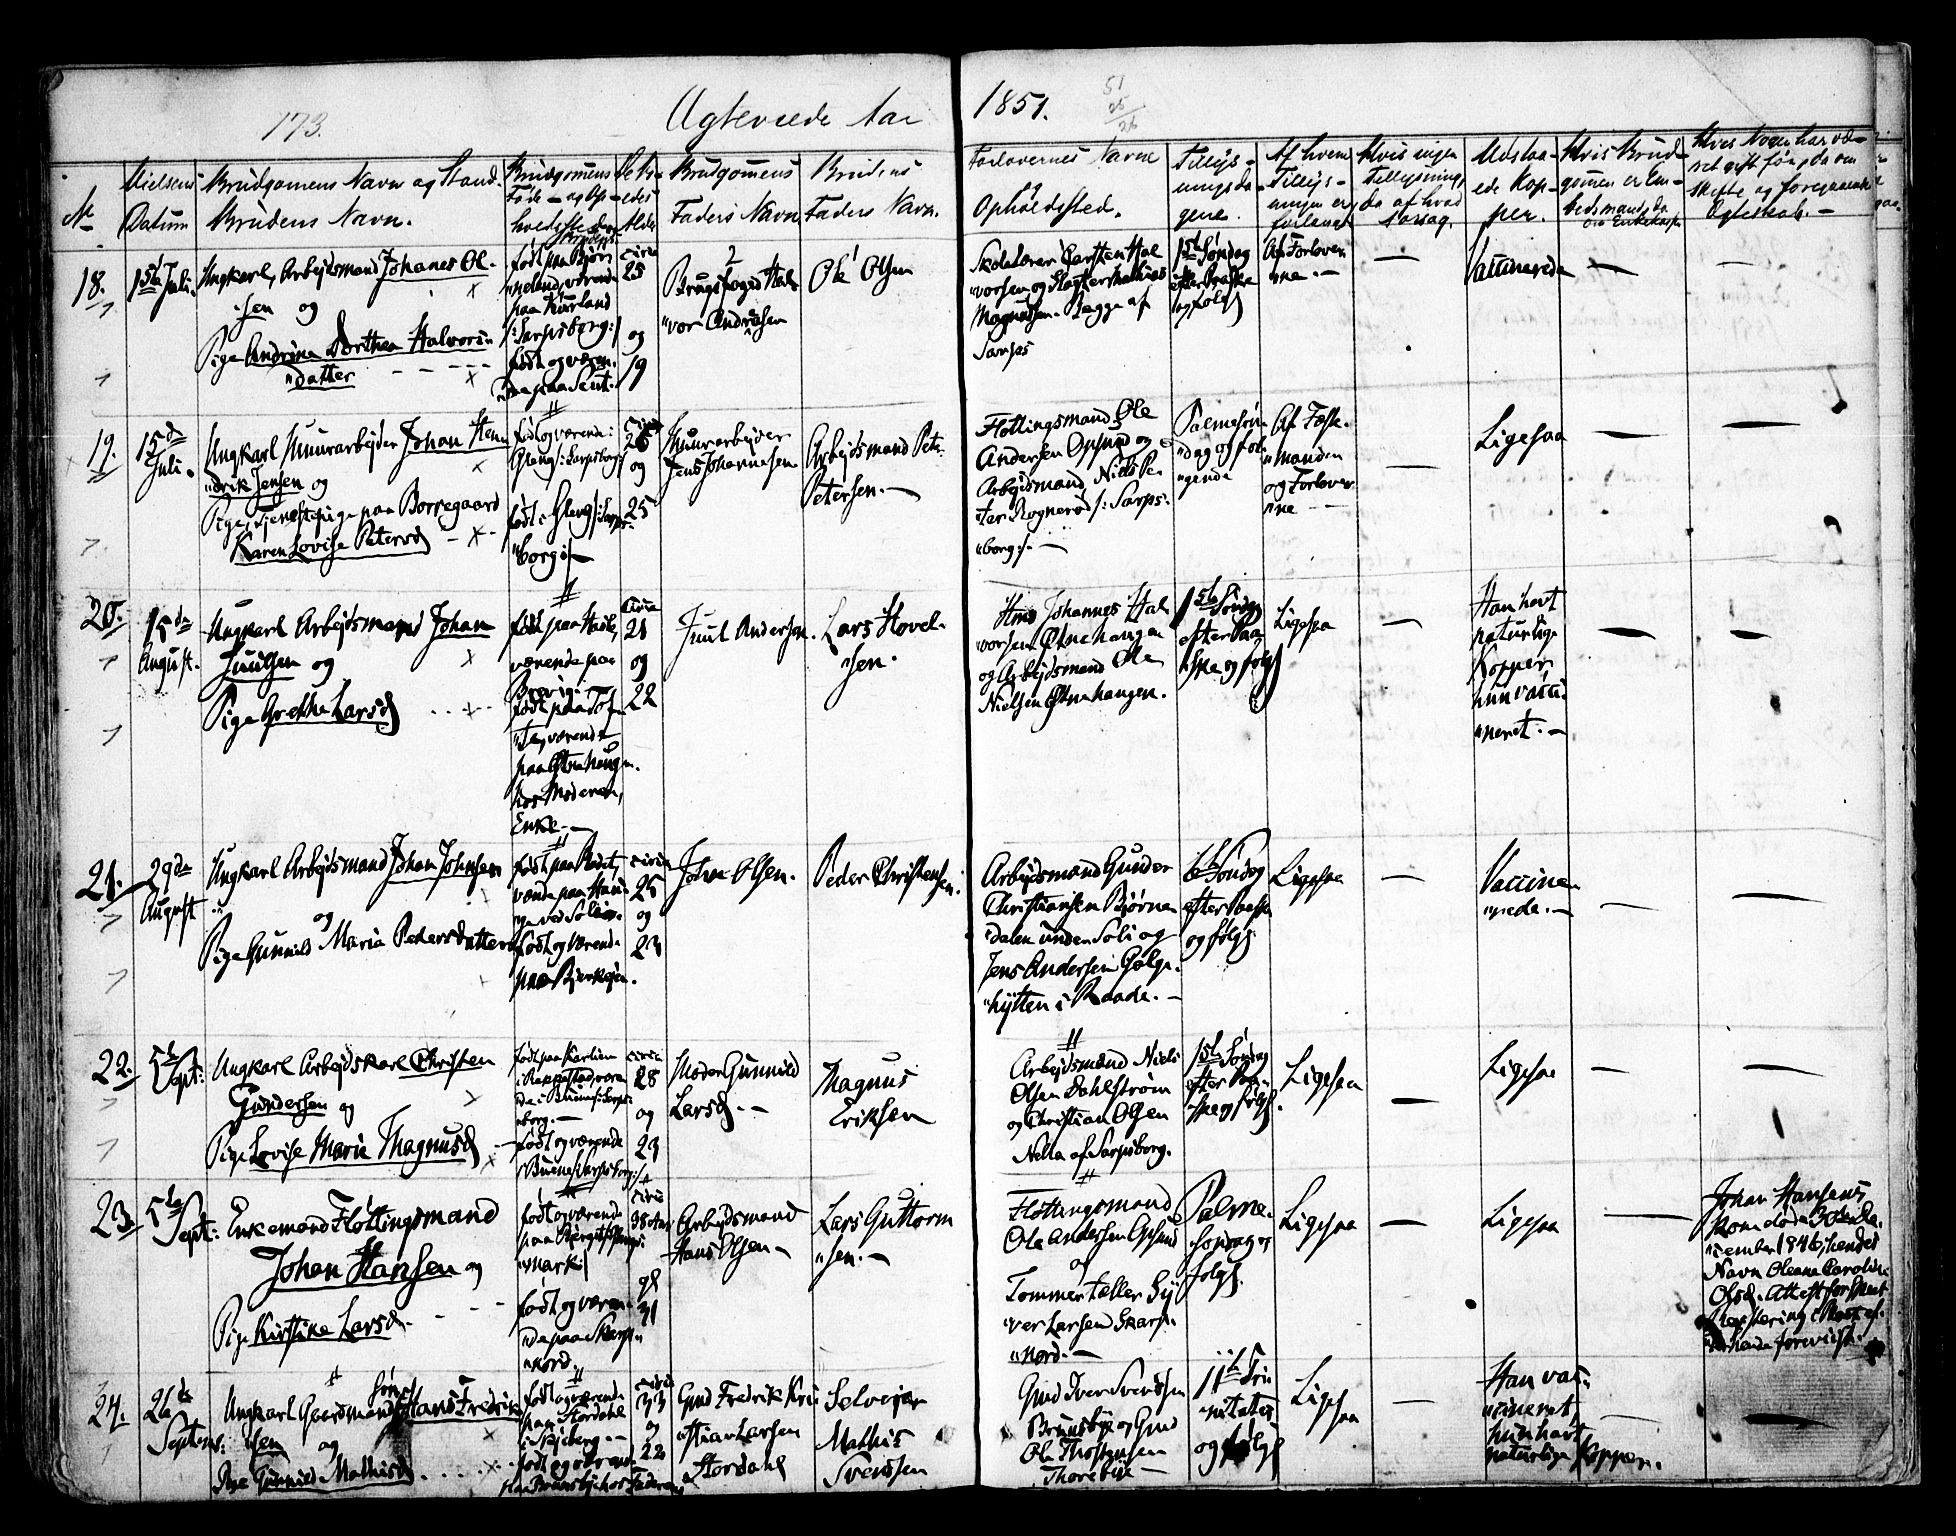 173.
Ægteviede Aar
1851.
51
25
26
No
Vielsens Datum
Brudgomens Navn og Stand.
Brudens Navn.
Brudgomens Føde- og Op-
holdssted
Alder
Brudgomens
Faders Navn
Brudens
Faders Navn.
Forlovernes Navne
og
Opholdssted.
Tillys-
ningsda-
gene.
Af hvem
Tillys-
ningen er
forlangt
Hvis ingen
Tillysning,
da af hvad
Aarsag.
Udstaa-
ede Kop-
per.
Hvis Brud-
gomen er En-
kemand, da
Hvis Nogen har væ-
ret gift før, da om
Skifte og foregaaende
Ægteskab. -
18.
15de Juli.
Ungkarl, Arbejdsmand Johanes Ol-
"sen og
Pige Andrine Dorthea Halvors-
"datter
født paa Bjør-
"neland, værende
paa Kurland
/:Sarpsborg:/
født og væren-
circa
25
og
19
Brugsfoged Hal-
"vor Andersen
Ole Olsen
Skolelærer Carsten Hal
"vorsen og Slagter Mathias
Magnussen. Begge af
Sarps
1ste Søndag
efter Paaske
og følgd
Af Forlover-
ne. -
Vaccinerede
19.
15de
Juli.
Ungkarl Muurarbejder Johan Hen-
"drik Jensen og
Pige, Tjenestepige paa Borregaard
Karen Lovise Petersd
født og værende i
Gleng /:Sarpsborg:/
født i Gleng /:Sarps-
"borg:/
circa
26
og
25
Muurarbejder
Jens Johannesen
Arbejdsmand Peter
Petersen. -
Fløttingsmand Ole
Andersen Opsund og
Arbejdsmand Niels Pe-
ter Rognerød /:Sarps-
"borg:/. -
Palmesøn-
"dag og føl-
"gende
Af Fæste-
"manden
og Forlover-
ne -
Ligesaa
20.
15de
August.
Ungkarl Arbejdsmand Johan
Juulsen og
Pige Grethe Larsd
værende paa
Brevig.
værende
paa Østnehaugen
hos Moderen,
Enke. -
circa
21
og
22
Juul Andersen.
Lars Hovel-
"sen.
Johannes Hal
vorsen Østnehaugen
og Arbejdsmand Ole
Nielsen Østnehaugen.
1ste Søndag
efter Paa-
"ske og følgd
Ligesaa
Han havt
naturlige
Kopper
hun vacci-
"neret. -
21.
29de
August
Ungkarl Arbejdsmand Johan Johnsen
og
Pige Gunnild Maria Pedersdatter
født og værende
circa
25
og
23
John Olsen.
Peder Christensen.
Arbejdsmand Gunder
Christiansen Bjørne
"dalen under Soli og
Jens Andersen Galge-
"hytten i Raade. -
6te Søndag
efter Paaske
og følgd
Ligesaa
Vaccine-
"rede. -
22.
5te
Sept:
Ungkarl Arbejdskarl Christen
Gundersen og
Pige Lovise Marie Magnusd
født og værende
circa
28
og
23
Moder Gunnild
Larsd. -
Magnus
Eriksen
Arbejdsmand Niels
Olsen Dahlstrøm
og Christian Olsen
Nella af Sarpsborg.
1ste Søndag
efter Paa-
"ske og følgd.
Ligesaa
Ligesaa
23.
5te
Sept:
Enkemand Fløttingsmand
Johan Hansen og
Pige Kirstine Larsd.
født og værende
født og væren-
"de paa Skarp-
"nord.
circa
38 Aar
og
31
Arbejdsmand
Hans Olsen -
Lars Guttorm
"sen. -
Fløttingsmand
Ole Andersen Opsund
og
Tommertæller Sy-
ver Larsen Skarp-
"nord. -
Palme-
søndag og
følgd.
Ligesaa
Ligesaa
Johan Hansens
Kone døde 30de De-
"cember 1846, hendes
Navn Oleana Carolin
Olsd. Attest for
24.
26de
Septemb:
Ungkarl Gaardmandssøn Hans Fredrik-
sen og
Pige Gunnild Mathisd
født og værende
paa Stordahl
i Skjeberg -
født og værende
circa
33
og
22
Gmd Fredrik Kri-
"stian Larsen
Stordahl
Selveier
Mathis
Svensen
Gmd Iver Svendsen
Brunsbye og Gmd
Ole Thostensen
Thorebye -
11te Tri-
"nitatis
og følgd
Ligesaa
Han vac-
"cineret
hun havt
naturlige Kopper.